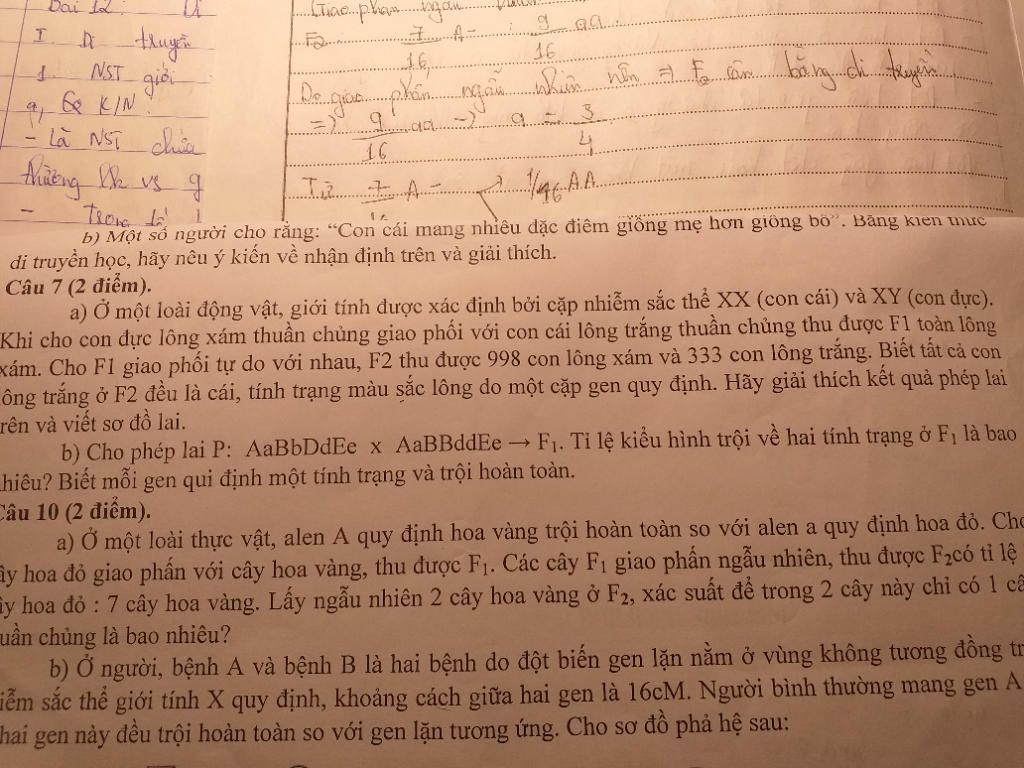 Bài 12
I Di truyền
1 NST giới
a, Ga K/N
- Là NST chứa
thường # vs g
- Trong tb
Giao phấn ngẫu nhiên
F2: 7/16 A- : 9/16 aa
Do giao phấn ngẫu nhiên nên => F2 cân bằng di truyền
=> 9/16 aa -> a = 3/4
Từ 7 A- -> 1/16 AA
b) Một số người cho rằng: “Con cái mang nhiều đặc điểm giống mẹ hơn giống bố”. Bằng kiến thức
di truyền học, hãy nêu ý kiến về nhận định trên và giải thích.
Câu 7 (2 điểm).
a) Ở một loài động vật, giới tính được xác định bởi cặp nhiễm sắc thể XX (con cái) và XY (con đực).
Khi cho con đực lông xám thuần chủng giao phối với con cái lông trắng thuần chủng thu được F1 toàn lông
xám. Cho F1 giao phối tự do với nhau, F2 thu được 998 con lông xám và 333 con lông trắng. Biết tất cả con
lông trắng ở F2 đều là cái, tính trạng màu sắc lông do một cặp gen quy định. Hãy giải thích kết quả phép lai
rên và viết sơ đồ lai.
b) Cho phép lai P: AaBbDdEe x AaBBddEe → F₁. Tỉ lệ kiểu hình trội về hai tính trạng ở F₁ là bao
hiêu? Biết mỗi gen qui định một tính trạng và trội hoàn toàn.
Câu 10 (2 điểm).
a) Ở một loài thực vật, alen A quy định hoa vàng trội hoàn toàn so với alen a quy định hoa đỏ. Cho
ây hoa đỏ giao phấn với cây hoa vàng, thu được F₁. Các cây F₁ giao phấn ngẫu nhiên, thu được F₂có tỉ lệ
ây hoa đỏ : 7 cây hoa vàng. Lấy ngẫu nhiên 2 cây hoa vàng ở F₂, xác suất để trong 2 cây này chỉ có 1 câ
uần chủng là bao nhiêu?
b) Ở người, bệnh A và bệnh B là hai bệnh do đột biến gen lặn nằm ở vùng không tương đồng tr
iễm sắc thể giới tính X quy định, khoảng cách giữa hai gen là 16cM. Người bình thường mang gen A
hai gen này đều trội hoàn toàn so với gen lặn tương ứng. Cho sơ đồ phả hệ sau: